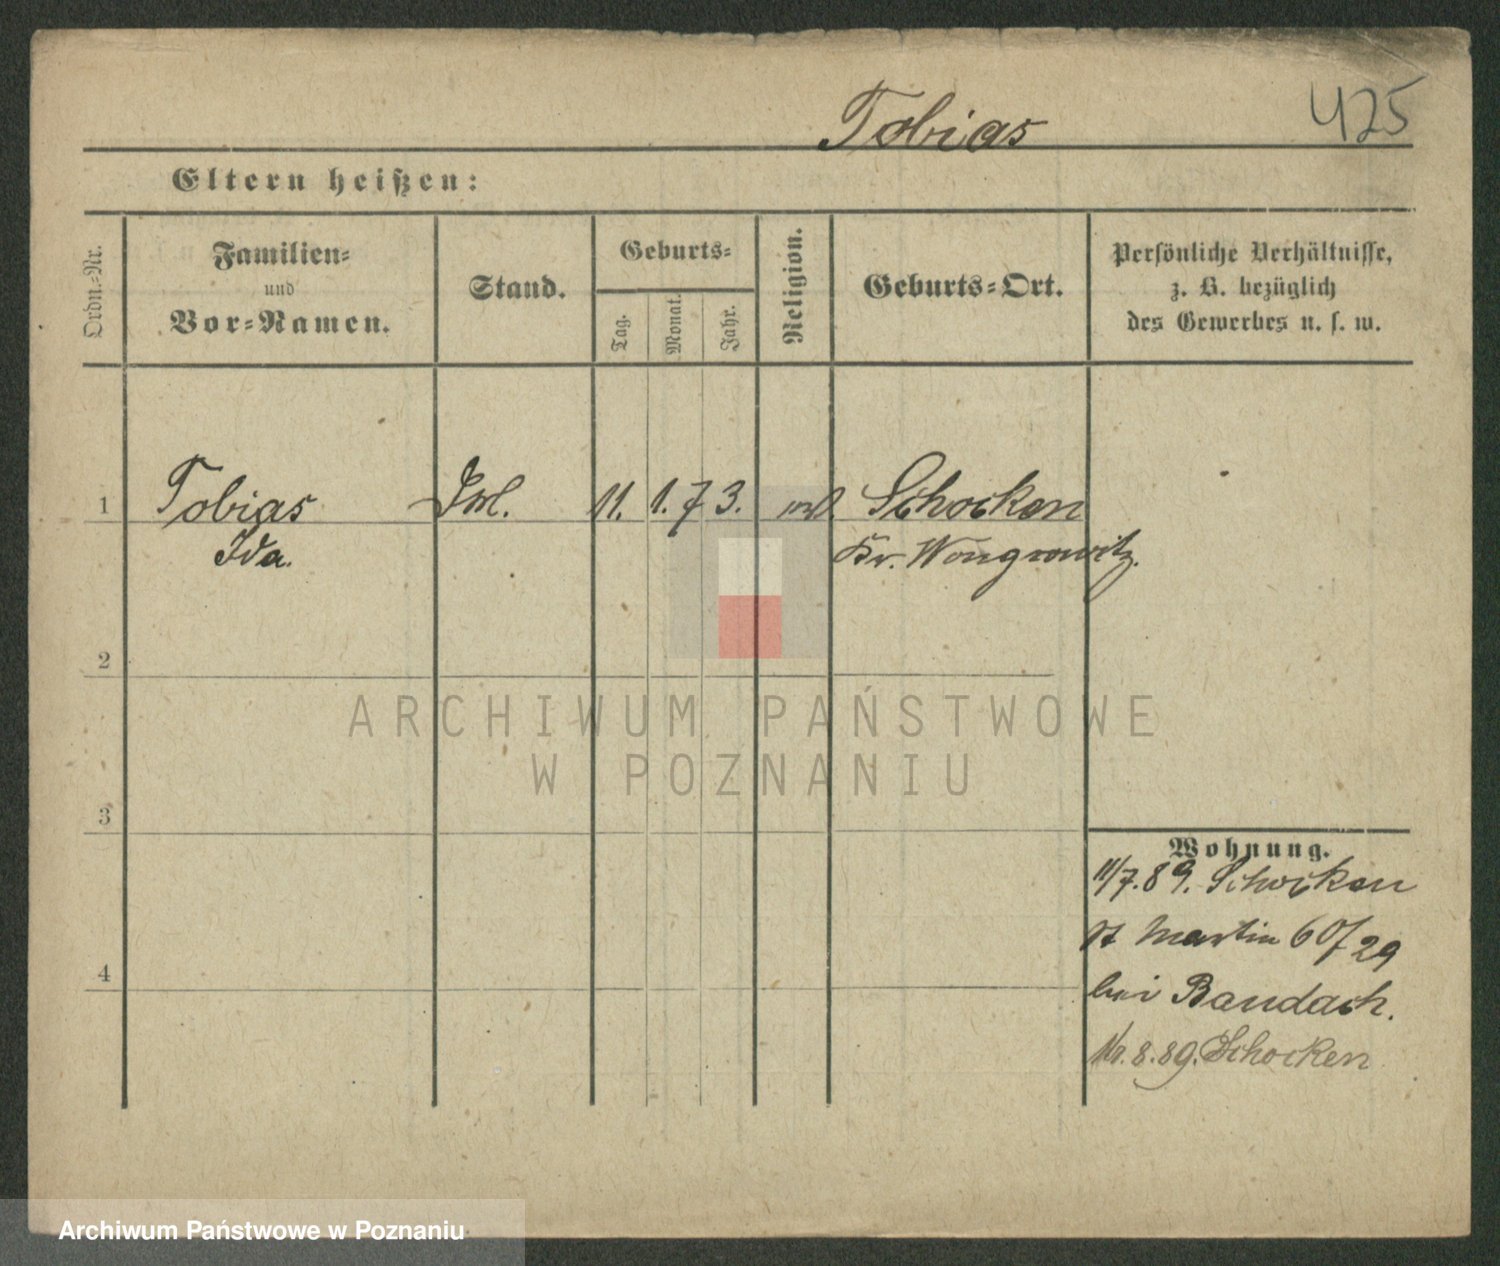 Tobias
425
Eltern heißen:
Ordn.-Nr.
Familien-
und
Vor-Namen.
Stand.
Geburts-
Tag.
Monat.
Jahr.
Religion.
Geburts-Ort.
Persönliche Verhältnisse,
z. B. bezüglich
des Gewerbes u. s. w.
1 Tobias 11. 1. 73. Schocken
Ida. Kr. Wongrowitz.
2
3
4
Wohnung.
11/7. 89. Schocken
St Martin 60/29
bei Baudach.
8. 89. Schocken
ARCHIWUM PAŃSTWOWE
W POZNANIU
Archiwum Państwowe w Poznaniu